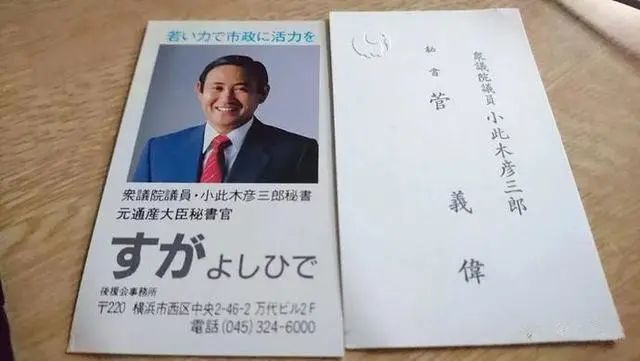 若い力で市政に活力を
衆議院議員・小此木彦三郎秘書
元通産大臣秘書官
すがよしひで
後援会事務所
〒220 横浜市西区中央2-46-2 万代ビル2F
電話(045)324-6000
衆議院議員 小此木彦三郎
秘書 菅義偉